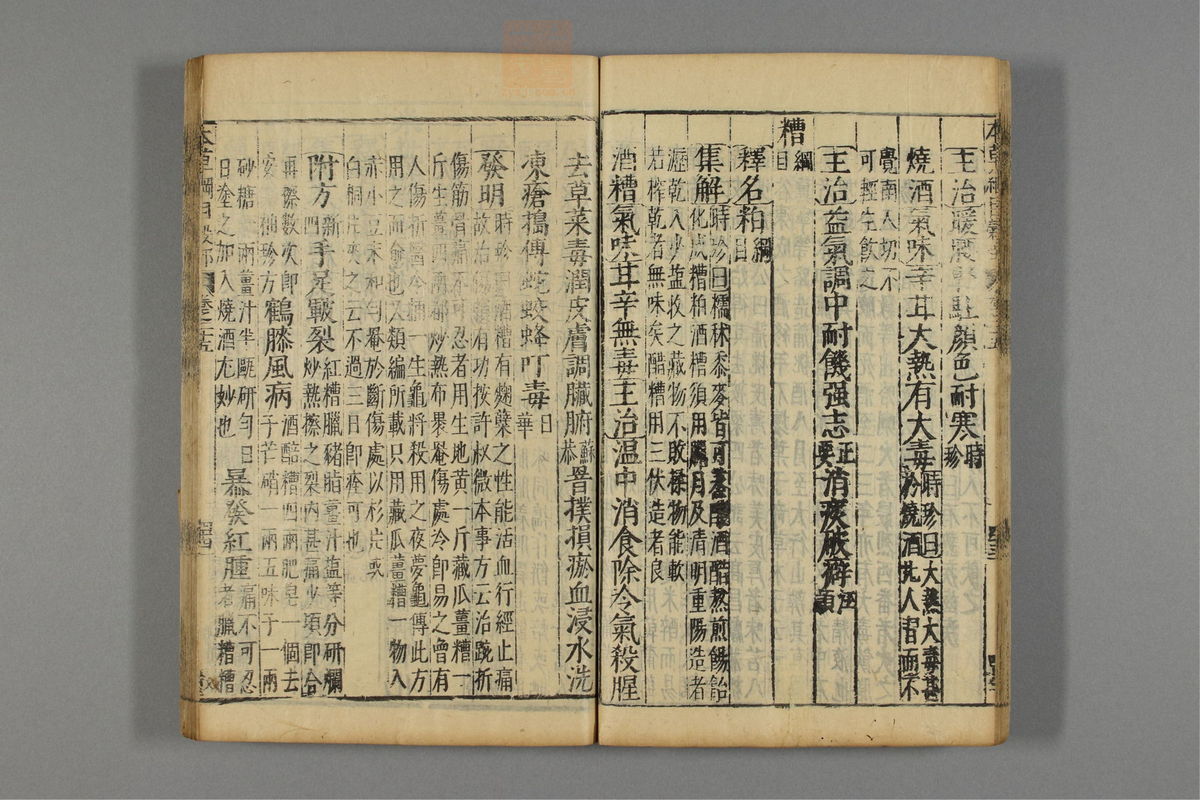 主治暖腰膝駐顏色耐寒時珍
燒酒氣味辛甘大熱有大毒時珍曰大熱大毒甚
於燒酒北人四時兩不
覺南人切不
可輕生飲之
主治益氣調中耐饑强志正要消痰破癖汪頴
糟綱目
釋名粕綱目
集解時珍曰糯秫黍麥皆可蒸釀酒醋熬煎餳飴
化成糟粕酒糟須用臘月及清明重陽造者
瀝乾入少塩收之藏物不敗揉物能軟
若榨乾者無味矣醋糟用三伏造者良
酒糟氣味甘辛無毒主治温中消食除冷氣殺腥
去草菜毒潤皮膚調臟腑蘇恭署撲損瘀血浸水洗
凍瘡搗傅蛇蛟蜂叮毒日華
發明時珍曰酒糟有麴糵之性能活血行經止痛
故治傷損有功按許叔微本事方云治踠折
傷筋骨痛不可忍者用生地黄一斤藏瓜薑糟一
斤生薑四兩都炒熱布褁罨傷處冷即易之曾有
人傷折醫令捕一生龜將殺用之夜夢龜傳此方
用之而愈也又類編所載只用藏瓜薑糟一物入
赤小豆末和勻罨於斷傷處以杉片或
白桐片夾之云不過三日即痊可也
附方新四手足皸裂紅糟臘豬脂薑汁塩等分研爛
炒熱擦之裂内甚痛少頃即合
再擦數次即
安袖珍方鶴膝風病酒醅糟四兩肥皂一個去
子芒硝一兩五味子一兩
砂糖一兩薑汁半甌研勻日
日塗之加入燒酒尤妙也暴發紅腫痛不可忍
者臘糟糟
本草綱目穀部
卷之二十五